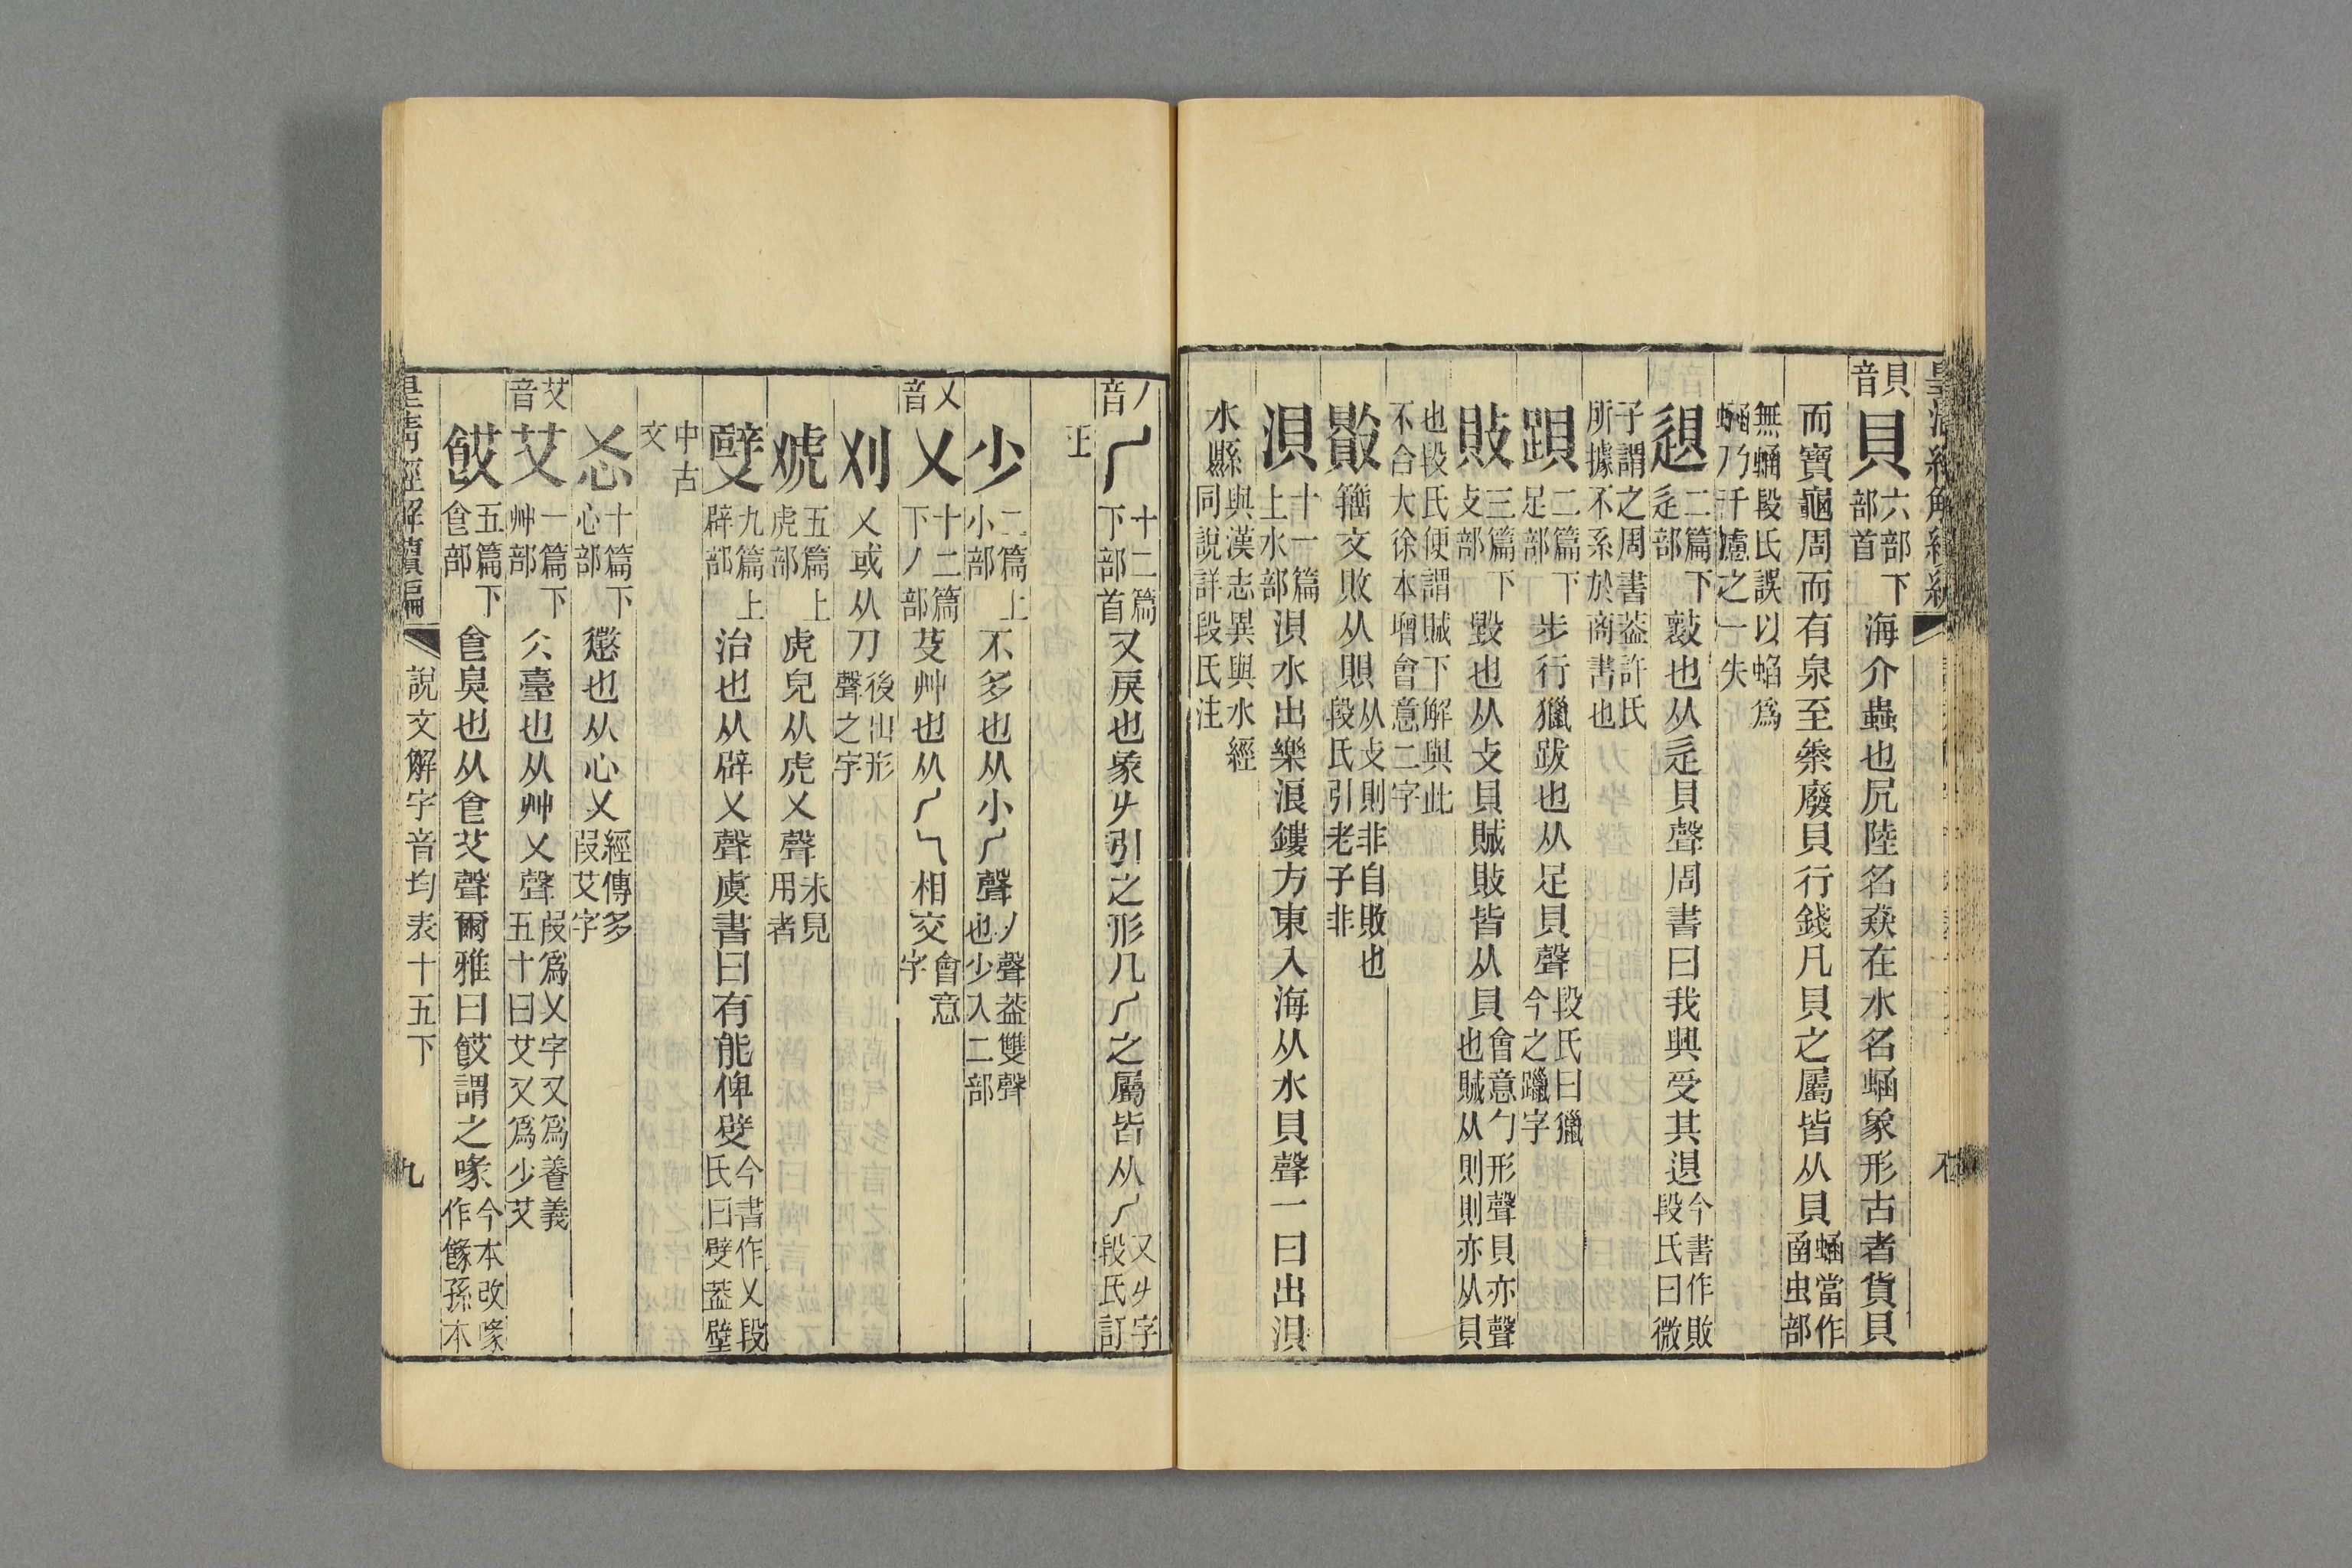 貝音 貝 六部下部首 海介蟲也尻陸名猋在水名蜬象形古者貨貝
而寶龜周而有泉至秦廢貝行錢凡貝之屬皆从貝 蜬當作函虫部
無蜬段氏誤以蛿爲蜬乃千慮之一失
𨓤 二篇下辵部 𣀮也从辵貝聲周書曰我興受其𨓤 今書作敗段氏曰微
子謂之周書葢許氏所據不系於商書也
跟 二篇下足部 步行獵跋也从足貝聲 段氏曰獵今之躐字
敗 三篇下攴部 毀也从攴貝賊敗皆从貝 會意勹形聲貝亦聲也賊从則則亦从貝
也段氏便謂賊下解與此不合大徐本增會意二字
𣀕 籒文敗从賏 从攴則非自敗也段氏引老子非
浿 十一篇上水部 浿水出樂浪鏤方東入海从水貝聲一曰出浿
水縣 與漢志異與水經同說詳段氏注
丿音 丿 十二篇下部首 又戾也象𠂇引之形凡丿之屬皆从丿 又𠂇字段氏訂
正
少 二篇上小部 不多也从小丿聲 丿聲葢雙聲也少入二部
乂音 乂 十二篇下丿部 芟艸也从丿乀相交 會意字
刈 乂或从刀 後出形聲之字
䖈 五篇上虎部 虎皃从虎乂聲 未見用者
嬖 九篇上辟部 治也从辟乂聲虞書曰有能俾嬖 今書作乂段氏曰嬖葢壁
中古文
忢 十篇下心部 懲也从心乂 經傳多叚艾字
艾音 艾 一篇下艸部 仌臺也从艸乂聲 叚爲乂字又爲養義五十曰艾又爲少艾
餀 五篇下食部 食臭也从食艾聲爾雅曰餀謂之喙 今本改喙作餯孫本
皇清經解續編 說文解字音均表十五下 九